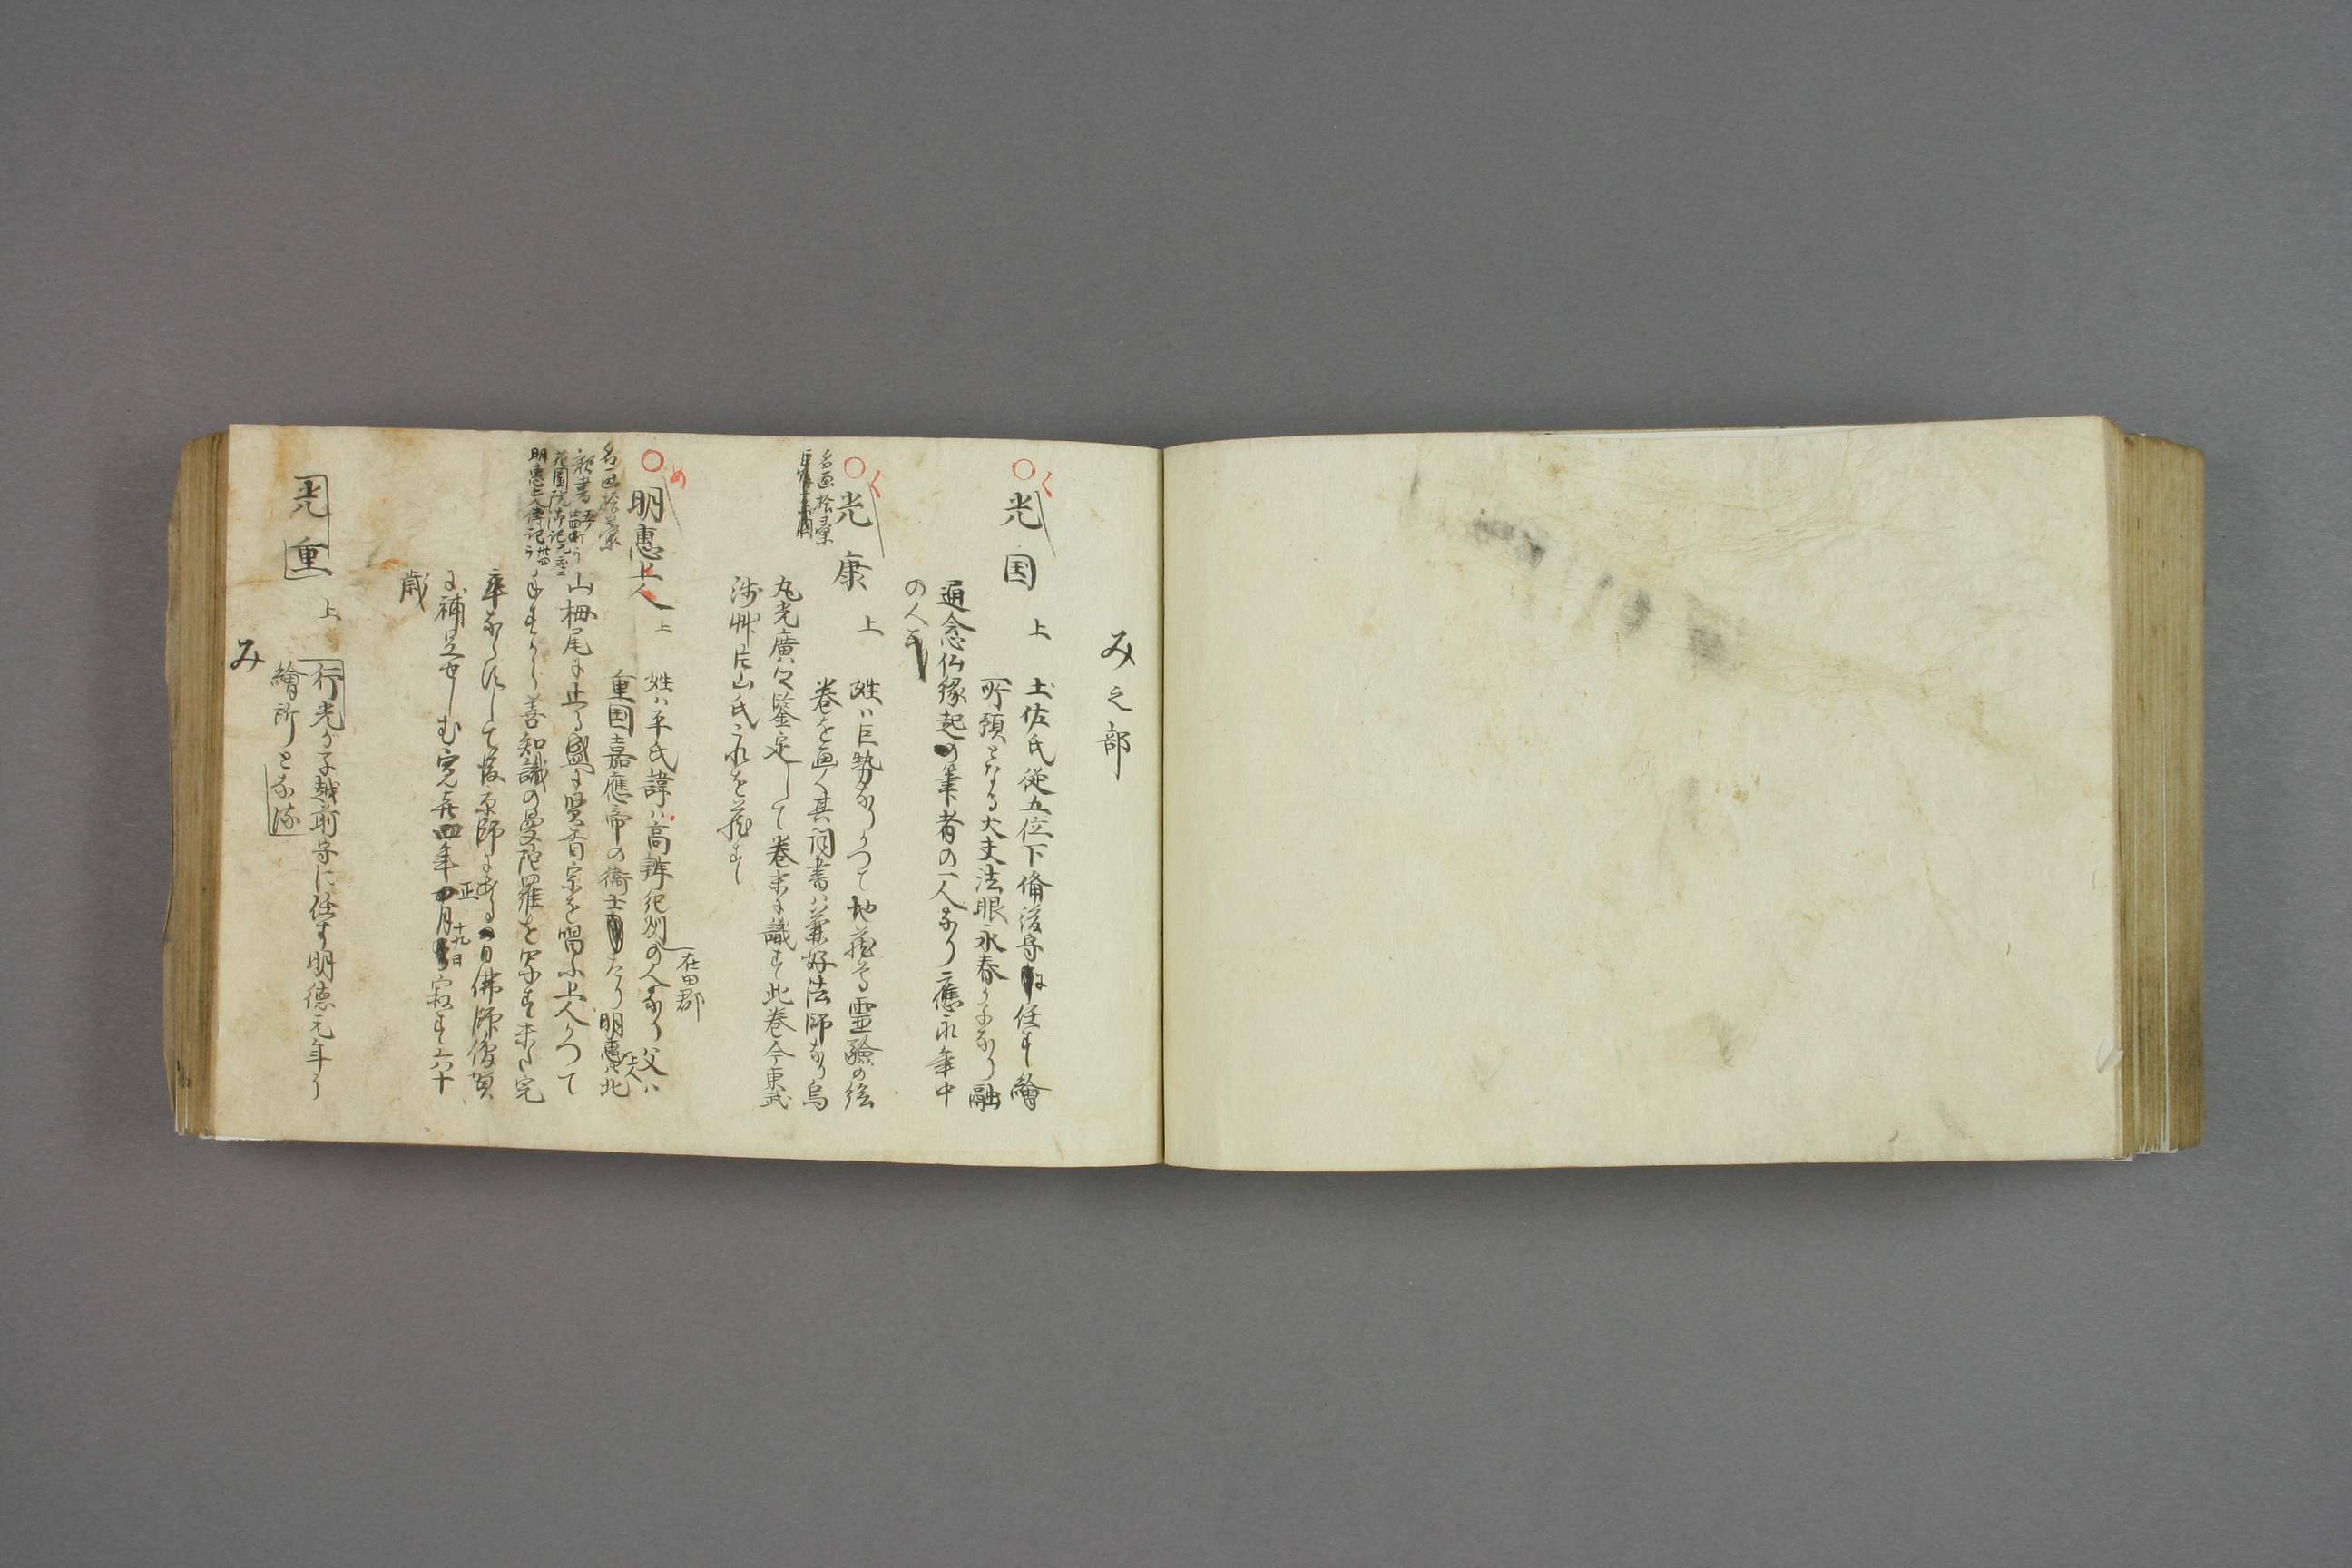 み之部
く
光国 上 土佐氏従五位下備後守に任す繪
所預となる大夫法眼永春か子なり融
通念仏縁起の筆者の一人なり應永年中
の人
く
光康 上 姓ハ巨勢なりかつて地蔵尊霊験の絵
名画拾彙
巻を画く其詞書ハ兼好法師なり烏
丸光廣公鑒定して巻末に識す此巻今東武
浅艸片山氏これを蔵す
め
明惠上人 上 姓ハ平氏諱ハ高辨紀州の人なり父ハ
在田郡
名画拾彙
重国嘉應帝の衛士たり明惠上人ハ北
釈書
山栂尾に止る盛に賢首宗を唱ふ上人かつて
花園院御記元亨二
明惠上人傳記
手すから善知識の曼陀羅を写す未た完
卒ならすして後京師にある日佛師俊賀
に補足せしむ寛喜四年正月十九日寂す六十
歳
光重 上 行光か子越前守に任す明徳元年より
繪所となる
み